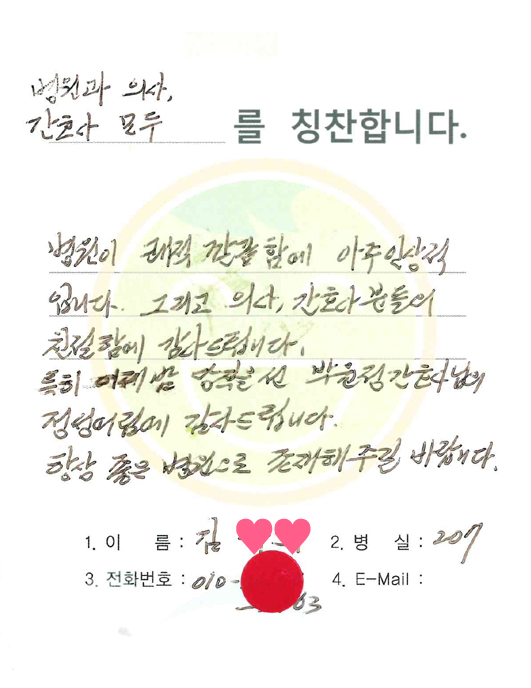 병원과 의사,
간호사 모두 를 칭찬합니다.
병원이 깔끔함에 아주 인상적
입니다. 그리고 의사, 간호사분들의
친절함에 감사드립니다.
특히 어제밤 당직을 선 박윤정간호사님의
정성어림에 감사드립니다.
항상 좋은 병원으로 존재해주길 바랍니다.
1. 이 름 : 김 2. 병 실 : 207
3. 전화번호 : 010- 4. E-Mail :
63